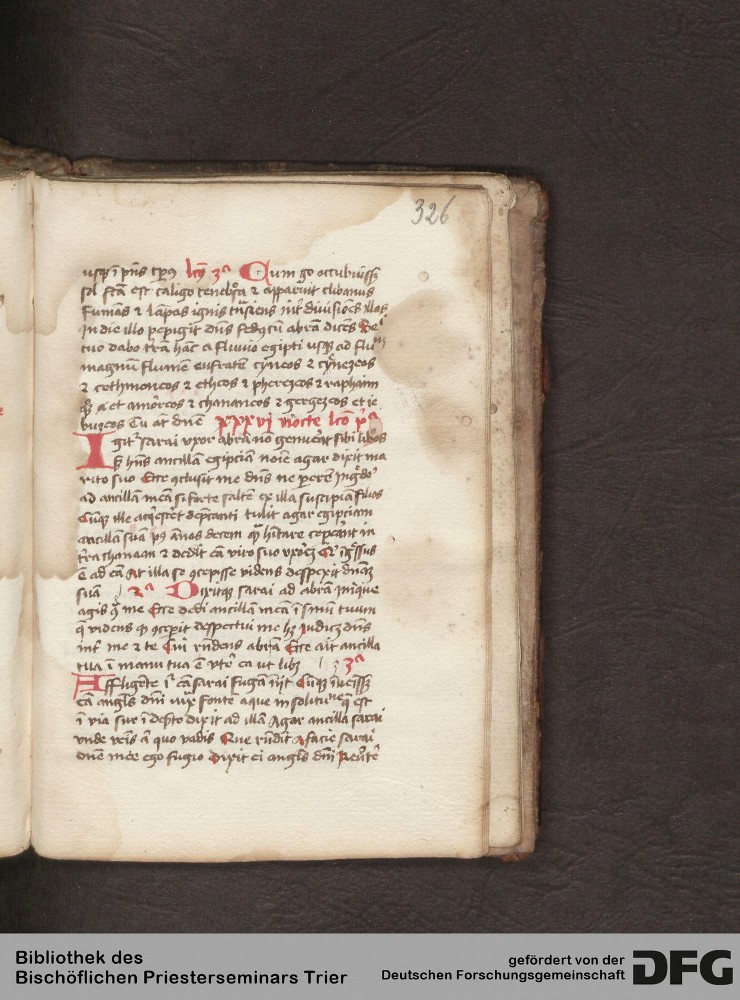 326
usqȝ ī p̄ns tp̄9 lcō 3ᵃ Cum g̊o occubuissȝ
sol fcā est caligo tenebrosa ⁊ apparuit clibanus
fumās ⁊ lāpas ignis trāsiens int̄ diuisiōes illas
In die illo pepigit dn̄s fedꝯ cū abrā dicēs
tuo dabo t̄rā hāc a fluuio egipti usqȝ ad
magnū fluuiē eufratē cyneos ⁊ cynezeos
⁊ cethmoneos ⁊ etheos ⁊ pherezeos ⁊ raphaim
et amorreos ⁊ chananeos ⁊ gergezeos et ie
buzeos
xxxvj nocte lcō pᵃ
Igit̄ sarai vxor abrā nō genuerat sibi lib̄os
sȝ hn̄s ancillā egipciā noīe agar dixit ma
rito suo Ecce ꝯclusit me dn̄s ne
ad ancillā meā si forte saltē ex illa suscipiā filios
Cūqȝ ille acq̄esceret dep̄canti tulit agar egipciam
ancillā suā annos decem hītare ceperant in
t̄ra chanaan ⁊ dedit eā viro suo
ē ad eā At illa se ꝯcepisse videns despexit dn̄am
suā 2ᵃ Dixitqȝ sarai ad abrā iniq̄e
agis me Ecce dedi ancillā meā ī sinū tuum
q̄ videns ꝙ ꝯcep̄it despectui me hȝ Iudicȝ dn̄s
int̄ me ⁊ te Cui rn̄dens abrā Ecce ait ancilla
tua ī manu tua ē vt̄e ea ut libȝ 3ᵃ
Affligēte eā sarai fugā Cūqȝ īuēissȝ
eā angl̄s dn̄i iuxᵃ fontē aque in solitudine q̄ est
ī via sur ī dest̄o dixit ad illā Agar ancilla sarai
vnde venis ⁊ quo vadis Que rn̄dit A facie sarai
dn̄e mee ego fugio Dixit ei angl̄s dn̄i Reut̄e
Bibliothek des
Bischöflichen Priesterseminars Trier
gefördert von der
Deutschen Forschungsgemeinschaft
DFG